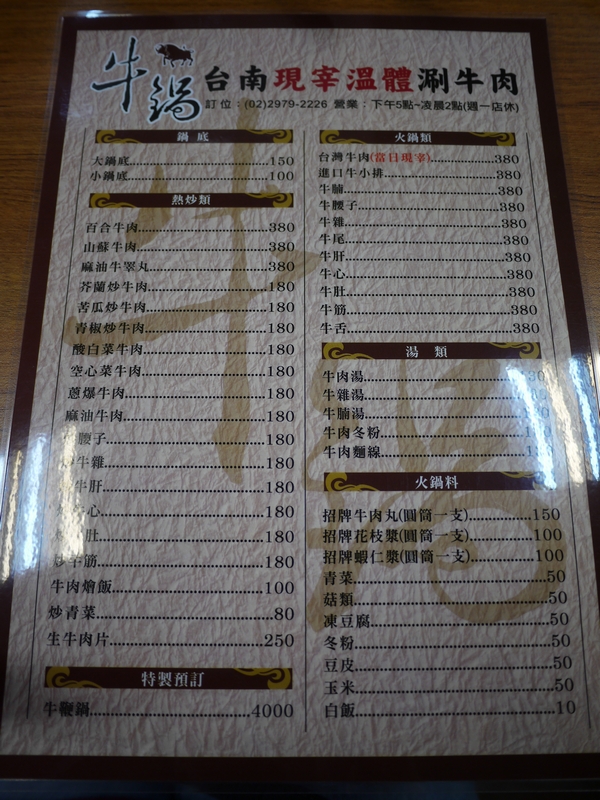 牛鍋 台南現宰溫體涮牛肉
訂位：(02)2979-2226 營業：下午5點~凌晨2點(週一店休)
鍋底
大鍋底 150
小鍋底 100
熱炒類
百合牛肉 380
山蘇牛肉 380
麻油牛睪丸 380
芥蘭炒牛肉 180
苦瓜炒牛肉 180
青椒炒牛肉 180
酸白菜牛肉 180
空心菜牛肉 180
蔥爆牛肉 180
麻油牛肉 180
腰子 180
牛雜 180
牛肝 180
心 180
肚 180
炒牛筋 180
牛肉燴飯 100
炒青菜 80
生牛肉片 250
特製預訂
牛鞭鍋 4000
火鍋類
台灣牛肉(當日現宰) 380
進口牛小排 380
牛腩 380
牛腰子 380
牛雜 380
牛尾 380
牛肝 380
牛心 380
牛肚 380
牛筋 380
牛舌 380
湯類
牛肉湯
牛雜湯
牛腩湯
牛肉冬粉
牛肉麵線
火鍋料
招牌牛肉丸(圓筒一支) 150
招牌花枝漿(圓筒一支) 100
招牌蝦仁漿(圓筒一支) 100
青菜 50
菇類 50
凍豆腐 50
冬粉 50
豆皮 50
玉米 50
白飯 10